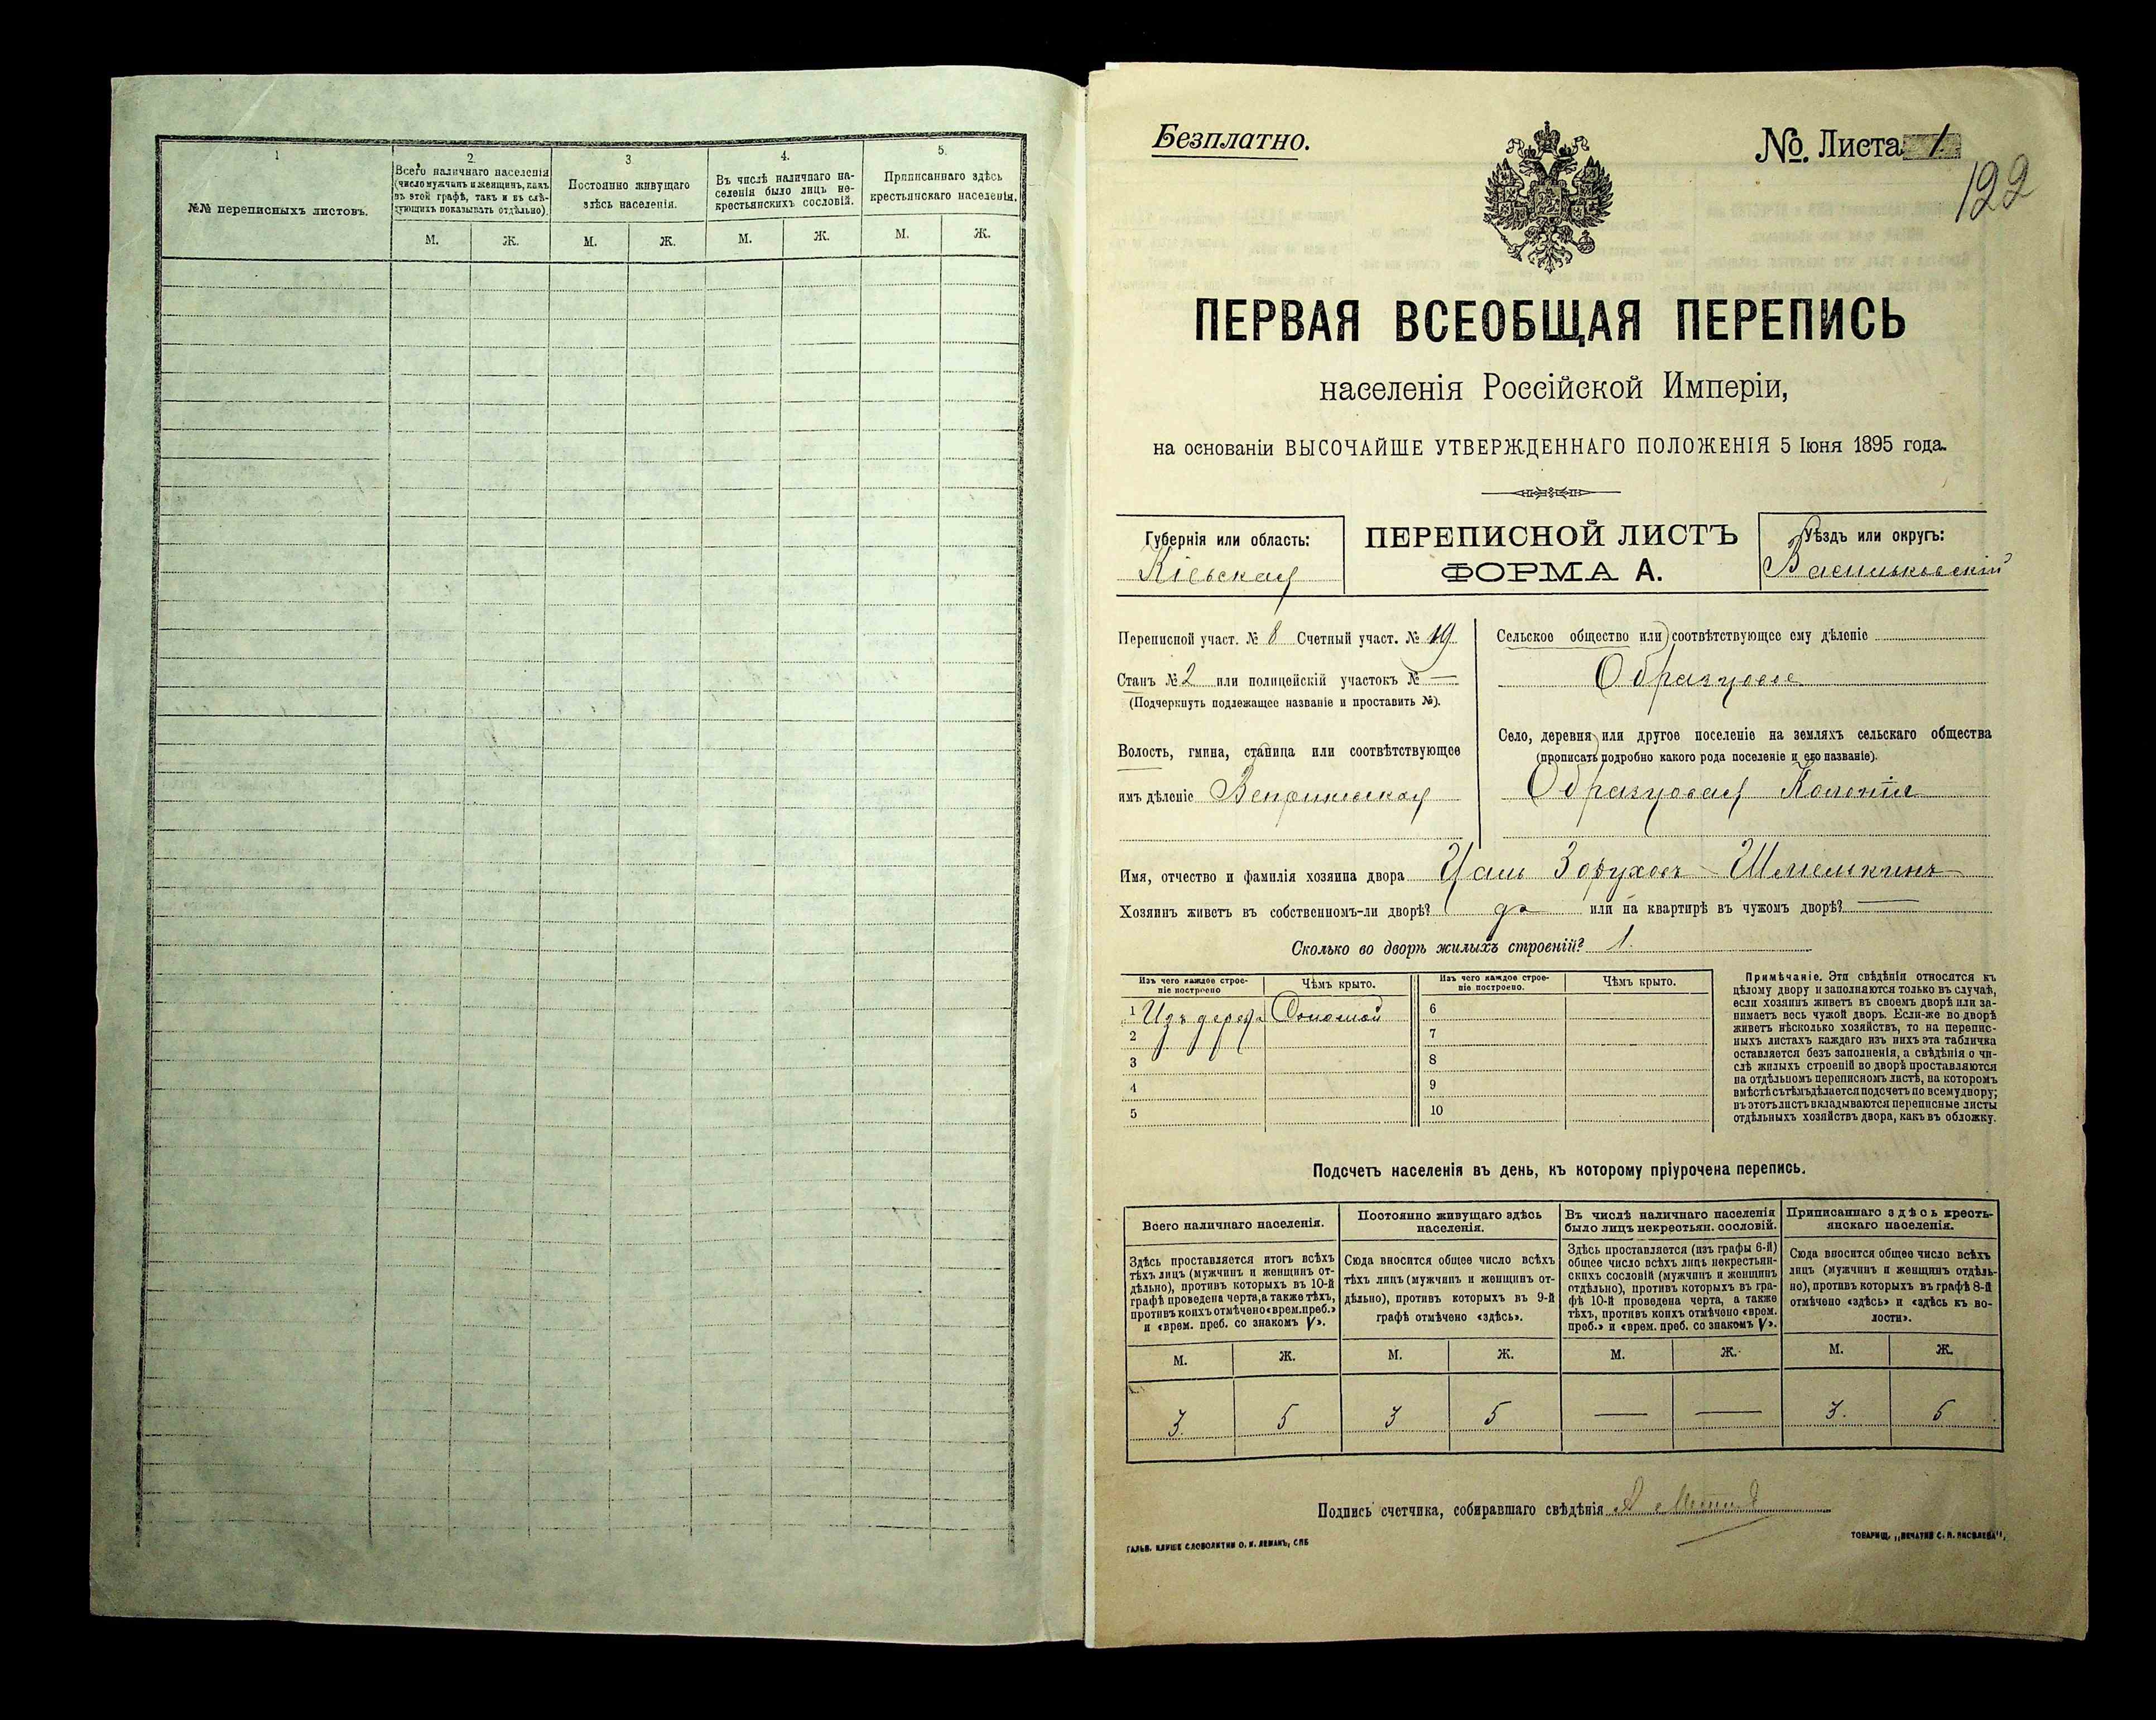 1
2.
3
4.
5.
№№ переписныхъ листовъ.
Всего наличнаго населенія
(число мужчинъ и женщинъ, какъ
въ этой графѣ, такъ и въ слѣ-
дующихъ показывать отдѣльно).
Постоянно живущаго
здѣсь населенія.
Въ числѣ наличнаго на-
селенія было лицъ не-
крестьянскихъ сословій.
Приписаннаго здѣсь
крестьянскаго населенія.
М. Ж. М. Ж. М. Ж. М. Ж.
Безплатно.
№. Листа 1
122
ПЕРВАЯ ВСЕОБЩАЯ ПЕРЕПИСЬ
населенія Россійской Имперіи,
на основаніи ВЫСОЧАЙШЕ УТВЕРЖДЕННАГО ПОЛОЖЕНІЯ 5 Іюня 1895 года.
Губернія или область:
Кіевская
ПЕРЕПИСНОЙ ЛИСТЪ
ФОРМА А.
Уѣздъ или округъ:
Васильковскій
Переписной участ. № 8 Счетный участ. № 19
Станъ № 2 или полицейскій участокъ № —
(Подчеркнуть подлежащее названіе и проставить №).
Волость, гмина, станица или соотвѣтствующее
имъ дѣленіе
Сельское общество или соотвѣтствующее ему дѣленіе
Образцовое
Село, деревня или другое поселеніе на земляхъ сельскаго общества
(прописать подробно какого рода поселеніе и его названіе).
Образцовая Колонія
Имя, отчество и фамилія хозяина двора Шмелькинъ
Хозяинъ живетъ въ собственномъ-ли дворѣ? да или на квартирѣ въ чужомъ дворѣ? —
Сколько во дворѣ жилыхъ строеній? 1.
Изъ чего каждое строе-
ніе построено
Чѣмъ крыто.
Изъ чего каждое строе-
ніе построено.
Чѣмъ крыто.
1 Изъ дерева Соломой 6
2 7
3 8
4 9
5 10
Примѣчаніе. Эти свѣдѣнія относятся къ
цѣлому двору и заполняются только въ случаѣ,
если хозяинъ живетъ въ своемъ дворѣ или за-
нимаетъ весь чужой дворъ. Если-же во дворѣ
живетъ нѣсколько хозяйствъ, то на перепис-
ныхъ листахъ каждаго изъ нихъ эта табличка
оставляется безъ заполненія, а свѣдѣнія о чи-
слѣ жилыхъ строеній во дворѣ проставляются
на отдѣльномъ переписномъ листѣ, на которомъ
вмѣстѣ съ тѣмъ дѣлается подсчетъ по всему двору;
въ этотъ листъ вкладываются переписные листы
отдѣльныхъ хозяйствъ двора, какъ въ обложку.
Подсчетъ населенія въ день, къ которому пріурочена перепись.
Всего наличнаго населенія.
Здѣсь проставляется итогъ всѣхъ
тѣхъ лицъ (мужчинъ и женщинъ от-
дѣльно), противъ которыхъ въ 10-й
графѣ проведена черта, а также тѣхъ,
противъ коихъ отмѣчено «врем. преб.»
и «врем. преб. со знакомъ V».
Постоянно живущаго здѣсь
населенія.
Сюда вносится общее число всѣхъ
тѣхъ лицъ (мужчинъ и женщинъ от-
дѣльно), противъ которыхъ въ 9-й
графѣ отмѣчено «здѣсь».
Въ числѣ наличнаго населенія
было лицъ некрестьян. сословій.
Здѣсь проставляется (изъ графы 6-й)
общее число всѣхъ лицъ некрестьян-
скихъ сословій (мужчинъ и женщинъ
отдѣльно), противъ которыхъ въ гра-
фѣ 10-й проведена черта, а также
тѣхъ, противъ коихъ отмѣчено «врем.
преб.» и «врем. преб. со знакомъ V».
Приписаннаго здѣсь кресть-
янскаго населенія.
Сюда вносится общее число всѣхъ
лицъ (мужчинъ и женщинъ отдѣль-
но), противъ которыхъ въ графѣ 8-й
отмѣчено «здѣсь» и «здѣсь къ во-
лости».
М. Ж. М. Ж. М. Ж. М. Ж.
3. 5 3 5 — — 3. 5
Подпись счетчика, собиравшаго свѣдѣнія
ГАЛЬВ. КЛИШЕ СЛОВОЛИТНИ О. И. ЛЕМАНЪ, СПБ
ТОВАРИЩ. „ПЕЧАТНЯ С. П. ЯКОВЛЕВА",